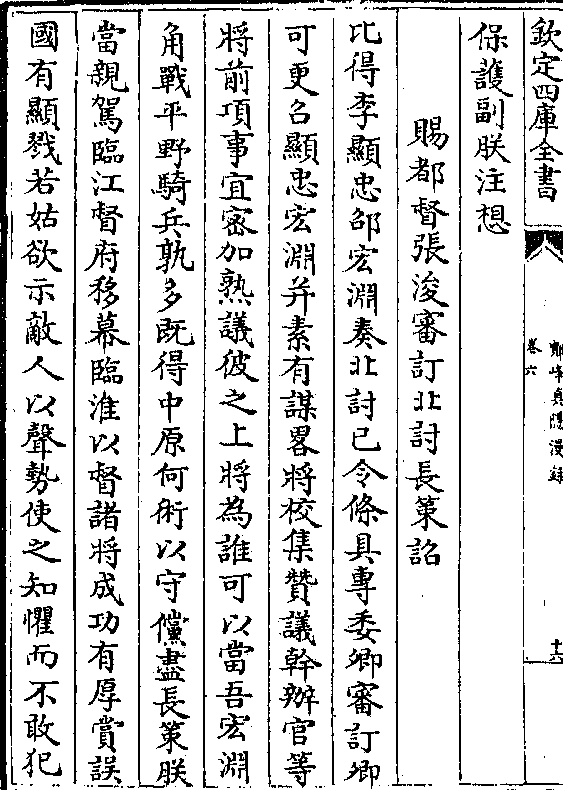 欽定四庫全書
鄮峰真隱漫録
卷六
十六
保護副朕注想
賜都督張浚審訂北討長策詔
比得李顯忠邵宏淵奏北討已令條具專委卿審訂卿
可更召顯忠宏淵并素有謀畧將校集贊議幹辦官等
將前項事宜密加熟議彼之上將為誰可以當吾宏淵
角戰平野騎兵孰多既得中原何術以守儻盡長策朕
當親駕臨江督府移幕臨淮以督諸將成功有厚賞誤
國有顯戮若姑欲示敵人以聲勢使之知懼而不敢犯